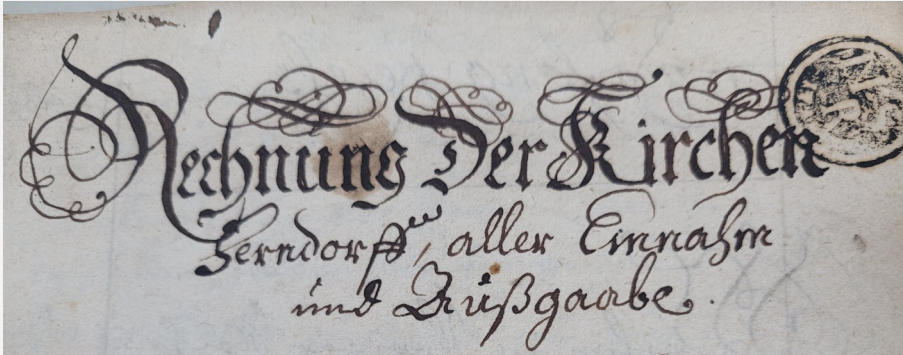 Rechnung Der Kirchen
Herndorff, aller Einnahm
und Außgaabe.